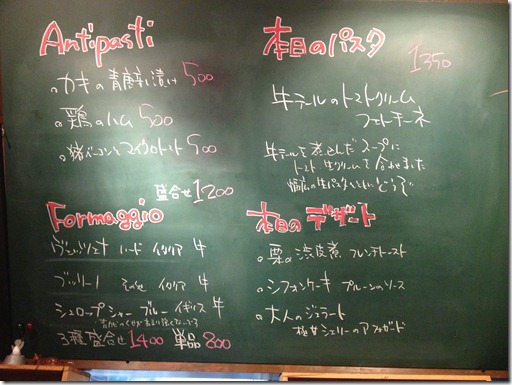 Antipasti
カキの青唐辛し漬け 500
鶏のハム 500
猪ベーコンとマイクロトマト 500
盛合せ 1200
Formaggio
ハード イタリア 牛
イタリア 牛
シュロップシャーブルー イギリス 牛
3種盛合せ 1400 単品 800
本日のパスタ
1350
牛テールのトマトクリーム
フェトチーネ
牛テールを煮込んだスープに
トマト、生クリームを合わせました
幅広の生パスタとともにどうぞ
本日のデザート
栗の渋皮煮 フレンチトースト
シフォンケーキ プルーンのソース
大人のジェラート
極甘シェリーのアフォガード